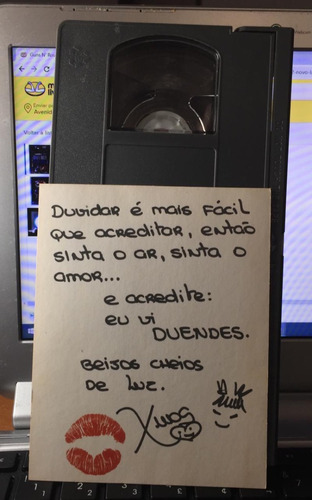 Duvidar é mais fácil
que acreditar, então
sinta o ar, sinta o
amor...
e acredite:
eu vi
DUENDES.
Beijos cheios
de luz.
Xuxa